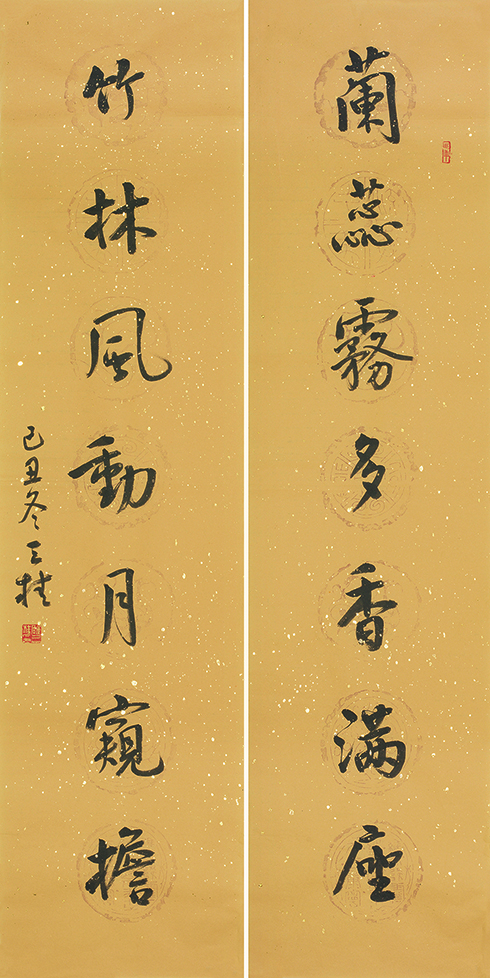 蘭蕊霧多香滿座
竹林風動月窺檐
己丑冬